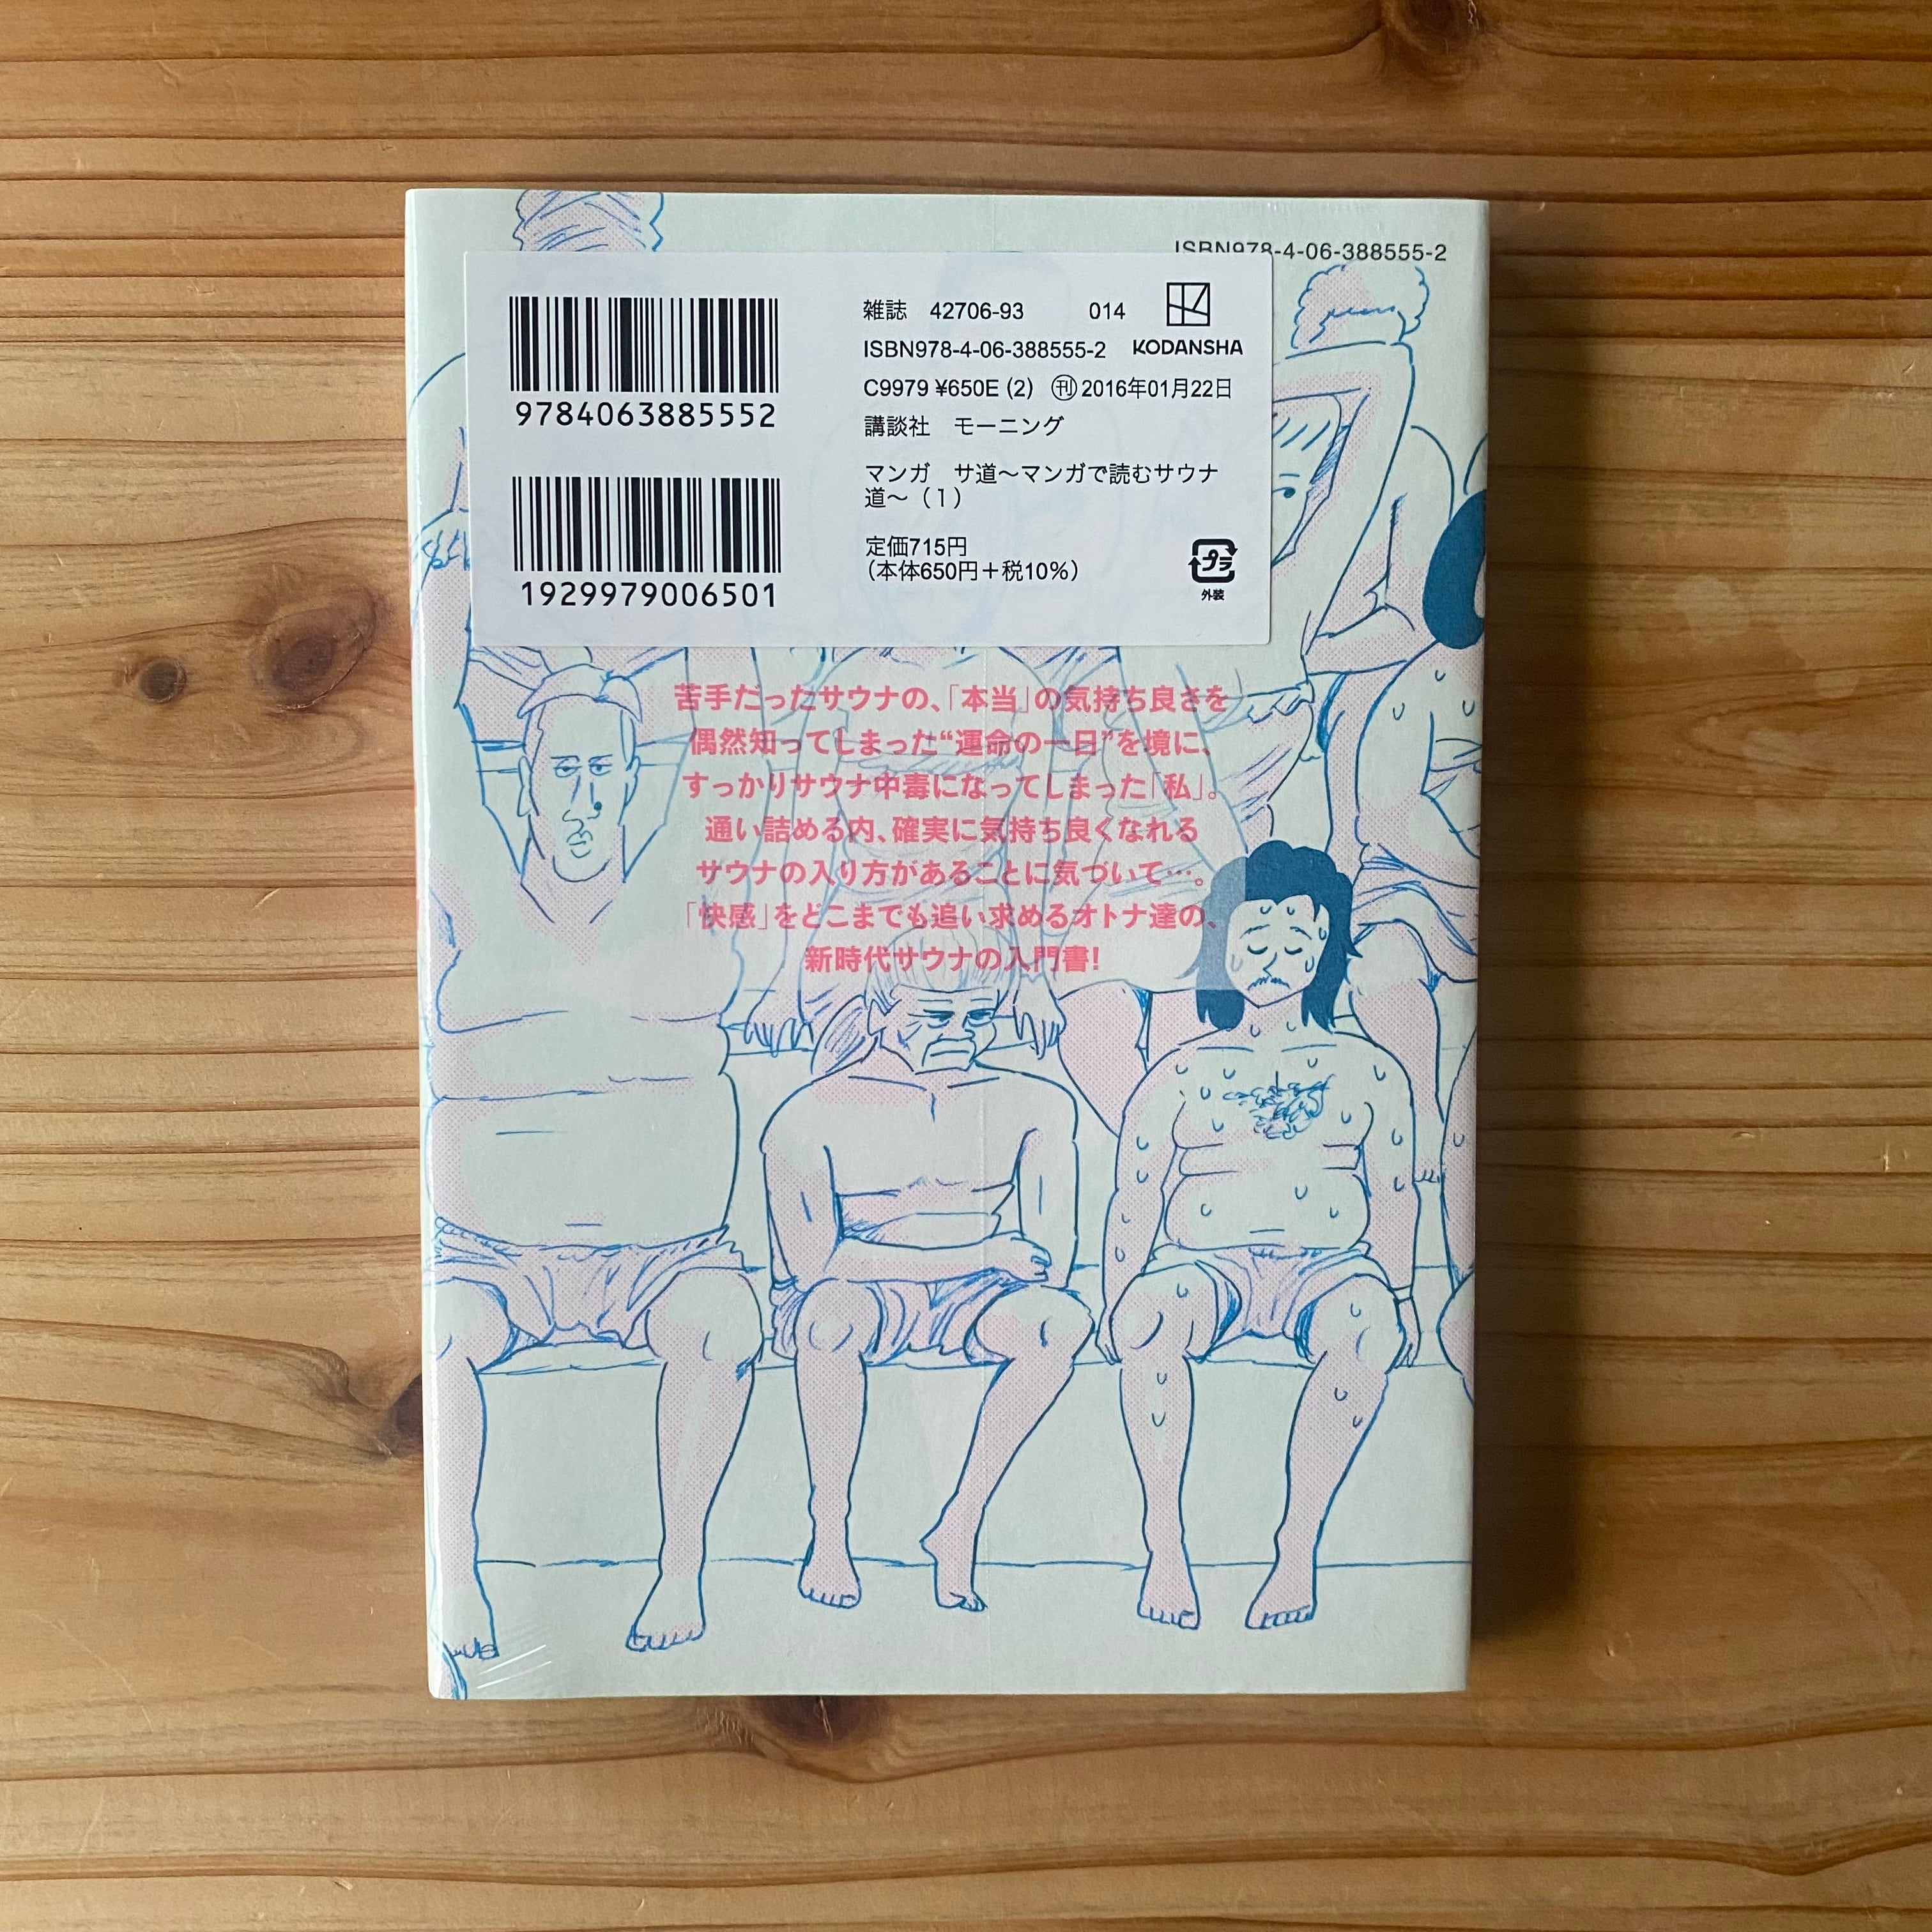 ISBN978-4-06-388555-2
9784063885552
1929979006501
雑誌 42706-93 014
ISBN978-4-06-388555-2 KODANSHA
C9979 ¥650E (2) ㊞2016年01月22日
講談社 モーニング
マンガ サ道〜マンガで読むサウナ
道〜（1）
定価715円
（本体650円＋税10%）
プラ
外装
苦手だったサウナの、「本当」の気持ち良さを
偶然知ってしまった“運命の一日”を境に、
すっかりサウナ中毒になってしまった「私」。
通い詰める内、確実に気持ち良くなれる
サウナの入り方があることに気づいて…。
「快感」をどこまでも追い求めるオトナ達の、
新時代サウナの入門書!